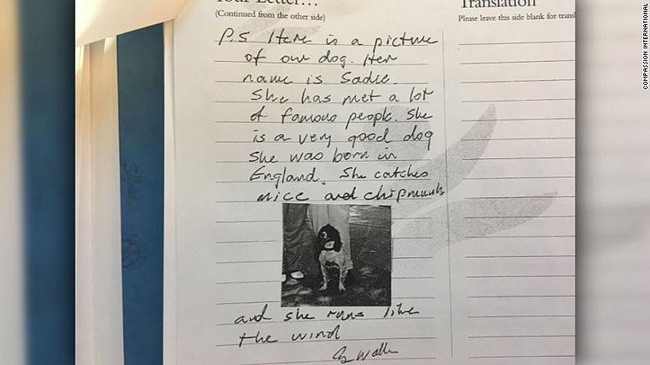 Your Letter...
(Continued from the other side)
P.S Here is a picture
of our dog. Her
name is Sadie.
She has met a lot
of famous people. She
is a very good dog
She was born in
England. She catches
mice and chipmunks
and she runs like
the wind
G Walker
Translation
Please leave this side blank for transl
COMPASSION INTERNATIONAL